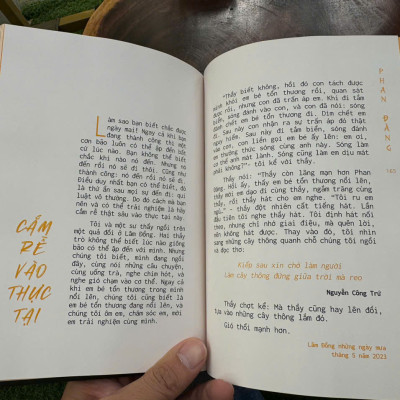 CẮM
RỄ
VÀO
THỰC
TẠI
Làm sao bạn biết chắc được
ngày mai? Ngay cả khi bạn
đang thành công thì một
cơn bão luôn có thể ập đến bất
cứ lúc nào. Bạn không thể biết
chắc khi nào nó đến. Nhưng nó
đến rồi nó sẽ đi thôi. Cũng như
thành công: nó đến rồi nó sẽ đi.
Điều duy nhất bạn có thể biết, đó
là thứ ẩn sau mọi sự đến đi: quy
luật vô thường. Do đó cách mà bạn
nên và có thể trải nghiệm là hãy
cắm rễ thật sâu vào thực tại này.
Tôi và một sư thầy ngồi trên
một quả đồi ở Lâm Đồng. Hai thầy
trò không thể biết lúc nào giông
bão có thể ập đến với mình. Nhưng
chúng tôi biết, mình đang ngồi
đây, cùng nói những câu chuyện,
cùng uống trà, nghe chim hót, và
nghe gió chạm vào cơ thể. Ngay
cả khi em bé tổn thương trong mình
nổi lên, chúng tôi cũng biết là
em bé tổn thương đang nổi lên, và
chúng tôi ôm em, chăm sóc em, mời
em trải nghiệm cùng mình.
"Thầy biết không, hồi đó con tách được
mình khỏi em bé tổn thương rồi, quan sát
được em, nhưng con đã trấn áp em. Khi đi tắm
biển, sóng đánh vào con, và con đã nói: sóng
đánh chết em bé tổn thương đi. Dìm chết em
đi. Sau này con nhận ra sự trấn áp đó thật
nguy hiểm. Sau này đi tắm biển, sóng đánh
vào con, con liền gọi em bé ấy lên: em ơi,
em thương ơi, sóng cùng anh này. Sóng làm
cơ thể anh mát lành. Sóng cũng làm em dịu mát
phải không?" - tôi kể với thầy.
Thầy nói: "Thầy còn lãng mạn hơn Phan
Đăng. Hồi ấy, thấy em bé tổn thương nổi lên,
thầy mời em dạo đi cùng thầy, ngắm trăng cùng
thầy, rồi thầy hát cho em nghe. "Tôi ru em
ngủ" - thầy đột nhiên cất tiếng hát. Lần
đầu tiên tôi nghe thầy hát. Tôi định hát nối
theo, nhưng chỉ nhớ giai điệu, mà quên lời,
nên không hát được. Thay vào đó, tôi nhìn
sang những cây thông quanh chỗ chúng tôi ngồi
và đọc thơ:
Kiếp sau xin chớ làm người
Làm cây thông đứng giữa trời mà reo
Nguyễn Công Trứ
Thầy chợt kể: Mà thầy cũng hay lên đồi,
tựa vào những cây thông lắm đó.
Gió thổi mạnh hơn.
Lâm Đồng những ngày mưa
tháng 5 năm 2023
PHAN
ĐĂNG